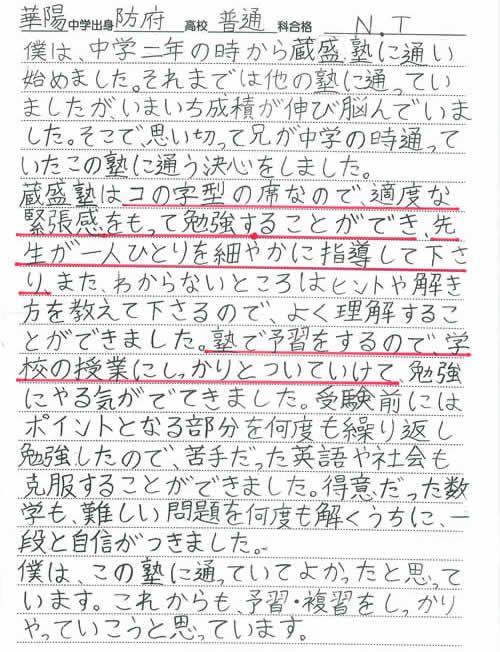 華陽中学出身 防府 高校 普通 科合格 N.T
僕は、中学二年の時から蔵盛塾に通い
始めました。それまでは他の塾に通ってい
ましたが、いまいち成積が伸び脳んでいま
した。そこで、思い切って兄が中学の時通って
いたこの塾に通う決心をしました。
蔵盛塾はコの字型の席なので、適度な
緊張感をもって勉強することができ、先
生が一人ひとりを細やかに指導して下さ
り、また、わからないところはヒントや解き
方を教えて下さるので、よく理解するこ
とができました。塾で予習をするので、学
校の授業にしっかりとついていけて、勉強
にやる気がでてきました。受験前には
ポイントとなる部分を何度も繰り返し
勉強したので、苦手だった英語や社会も
克服することができました。得意だった数
学も、難しい問題を何度も解くうちに、一
段と自信がつきました。
僕は、この塾に通っていてよかったと思って
います。これからも、予習・複習をしっかり
やっていこうと思っています。